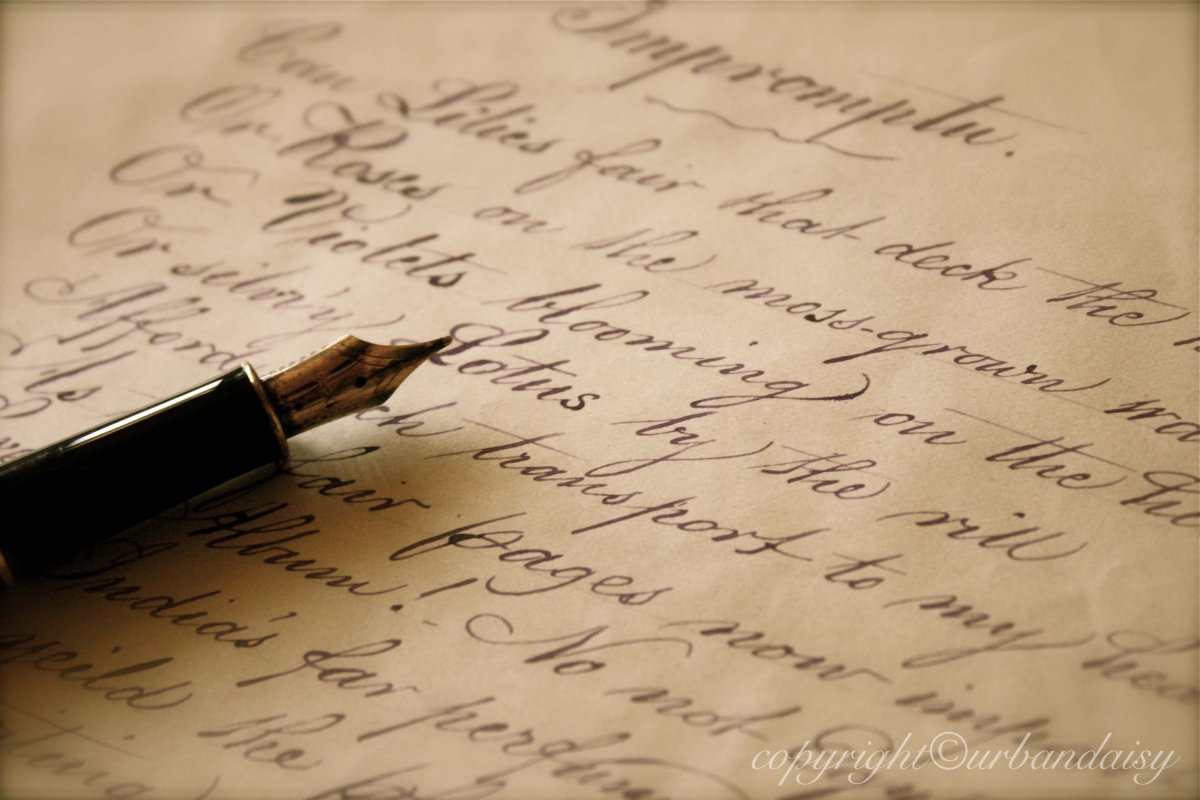 Impromptu.
Can Lilies fair that deck the
Or Roses on the moss-grown
Or Violets blooming on the
Or seilvry Lotus by the rill
Afford such transport to my
It's fair pages now
Album! No not
India's far
yeild the
copyright©urbandaisy